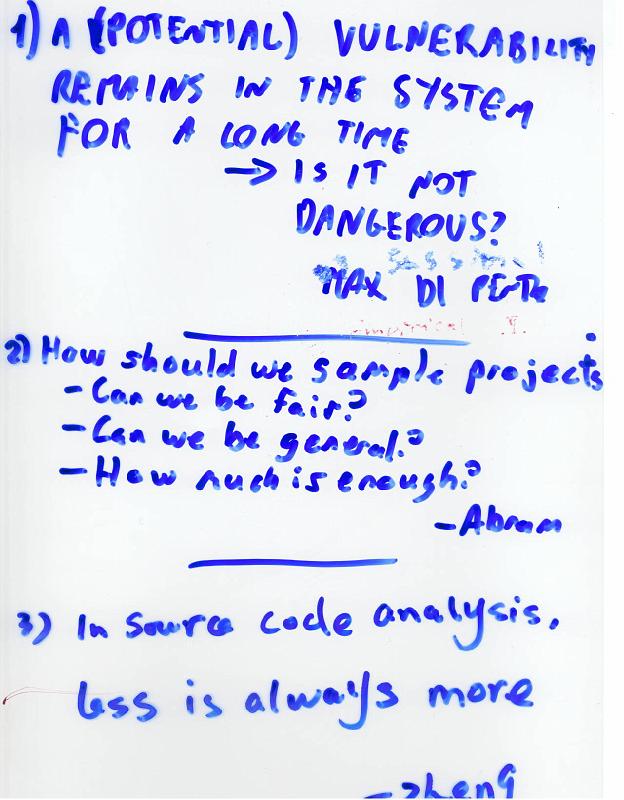 1) A (POTENTIAL) VULNERABILITY
REMAINS IN THE SYSTEM
FOR A LONG TIME
→ IS IT NOT
DANGEROUS?
MAX DI PENTA
2) How should we sample projects
- Can we be fair?
- Can we be general?
- How much is enough?
- Abram
3) In source code analysis,
less is always more
- zheng